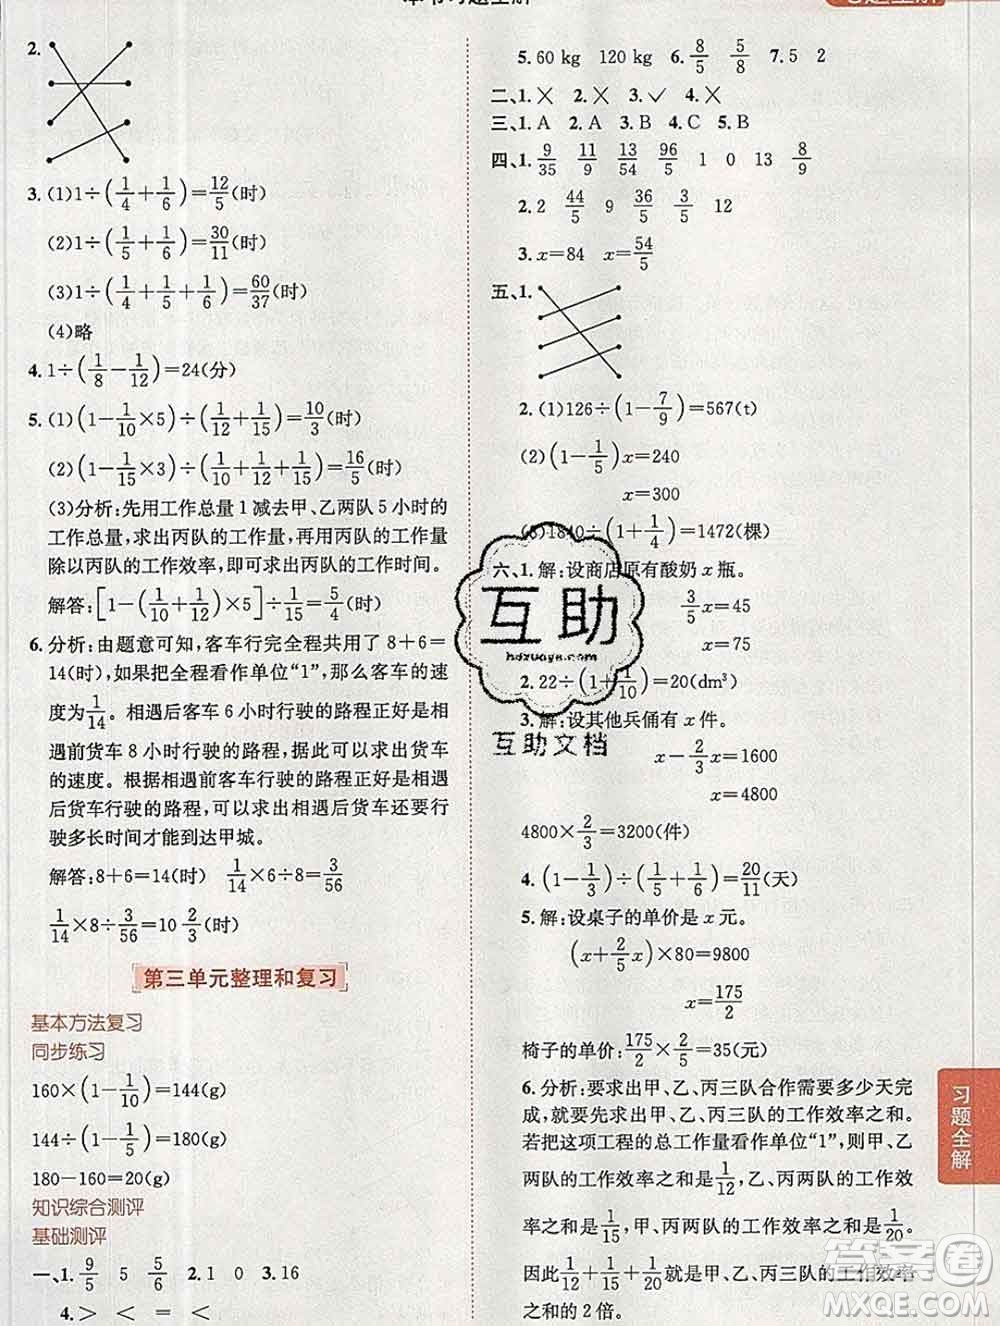 2.
3. (1)1÷(1/4+1/6)=12/5(时)
(2)1÷(1/5+1/6)=30/11(时)
(3)1÷(1/4+1/5+1/6)=60/37(时)
(4)略
4. 1÷(1/8-1/12)=24(分)
5. (1)(1-1/10×5)÷(1/12+1/15)=10/3(时)
(2)(1-1/15×3)÷(1/10+1/12+1/15)=16/5(时)
(3)分析:先用工作总量1减去甲、乙两队5小时的
工作总量,求出丙队的工作量,再用丙队的工作量
除以丙队的工作效率,即可求出丙队的工作时间。
解答:[1-(1/10+1/12)×5]÷1/15=5/4(时)
6. 分析:由题意可知,客车行完全程共用了8+6=
14(时),如果把全程看作单位“1”,那么客车的速
度为1/14。相遇后客车6小时行驶的路程正好是相
遇前货车8小时行驶的路程,由此可以求出货车
的速度。根据相遇前客车行驶的路程正好是相遇
后货车行驶的路程,可以求出相遇后货车还要行
驶多长时间才能到达甲城。
解答:8+6=14(时) 1/14×6÷8=3/56
1/14×8÷3/56=10 2/3(时)
第三单元整理和复习
基本方法复习
同步练习
160×(1-1/10)=144(g)
144÷(1-1/5)=180(g)
180-160=20(g)
知识综合测评
基础测评
一、1. 9/5 5 5/6 2. 1 0 3. 16
4. > < = <
5. 60 kg 120 kg 6. 8/5 5/8 7. 5 2
二、1. × 2. × 3. ✓ 4. ×
三、1. A 2. A 3. B 4. C 5. B
四、1. 9/35 11/9 13/54 96/5 1 0 13 8/9
2. 2 44/5 9 36/5 3/4 12
3. x=84 x=54/5
五、1.
2. (1)126÷(1-7/9)=567(t)
(2)(1-1/5)x=240
x=300
(3)1840÷(1+1/4)=1472(棵)
六、1. 解:设商店原有酸奶x瓶。
3/5x=45
x=75
2. 22÷(1+1/10)=20(dm³)
3. 解:设其他兵俑有x件。
x-2/3x=1600
x=4800
4800×2/3=3200(件)
4. (1-1/3)÷(1/5+1/6)=20/11(天)
5. 解:设桌子的单价是x元。
(x+2/5x)×80=9800
x=175/2
椅子的单价:175/2×2/5=35(元)
6. 分析:要求出甲、乙、丙三队合作需要多少天完
成,就要先求出甲、乙、丙三队的工作效率之和。
若把这项工程的总工作量看作单位“1”,则甲、乙
两队的工作效率之和是1/12,乙、丙两队的工作效
率之和是1/15,甲、丙两队的工作效率之和是1/20。
因此1/12+1/15+1/20是甲、乙、丙三队的工作效率
之和的2倍。
习题全解
互助
hdzuoye.com
互助文档
答案圈
MXQE.COM